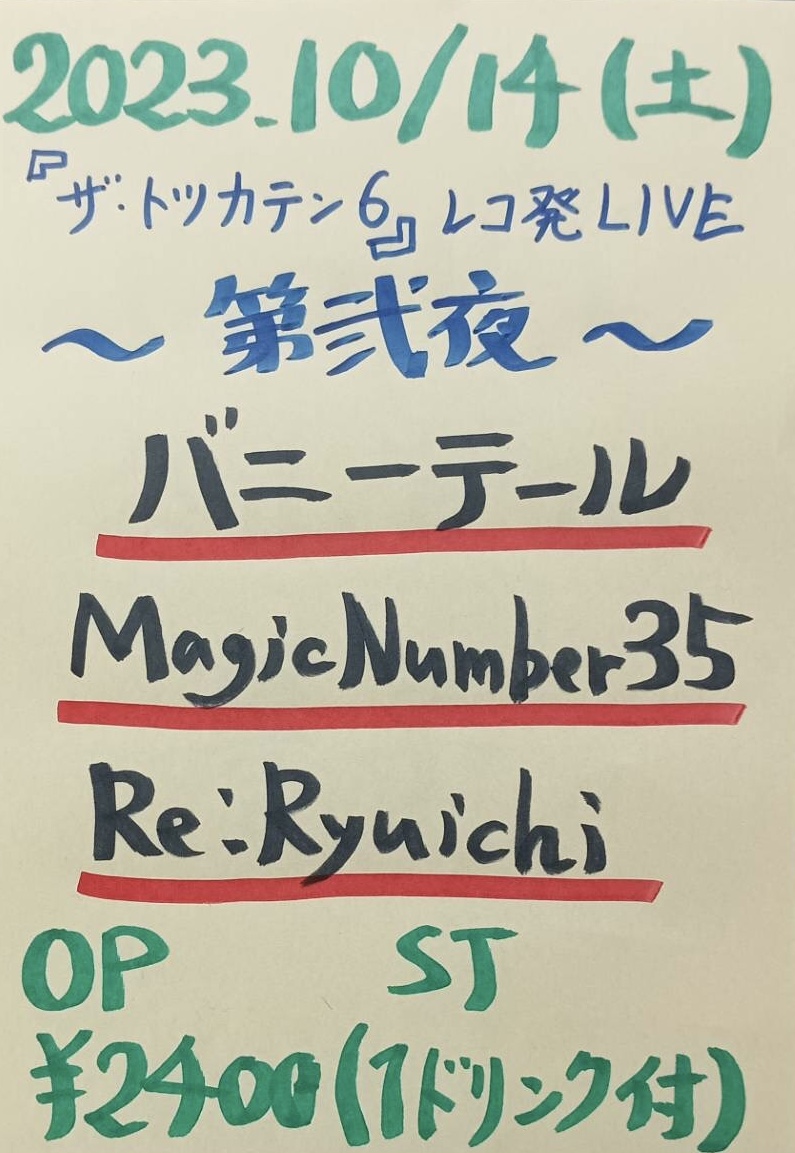 2023.10/14(土)
『ザ・トツカテン6』レコ発LIVE
～第弐夜～
バニーテール
MagicNumber35
Re:Ryuichi
OP ST
¥2400(1ドリンク付)